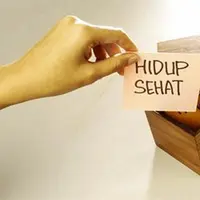 HIDUP
SEHAT